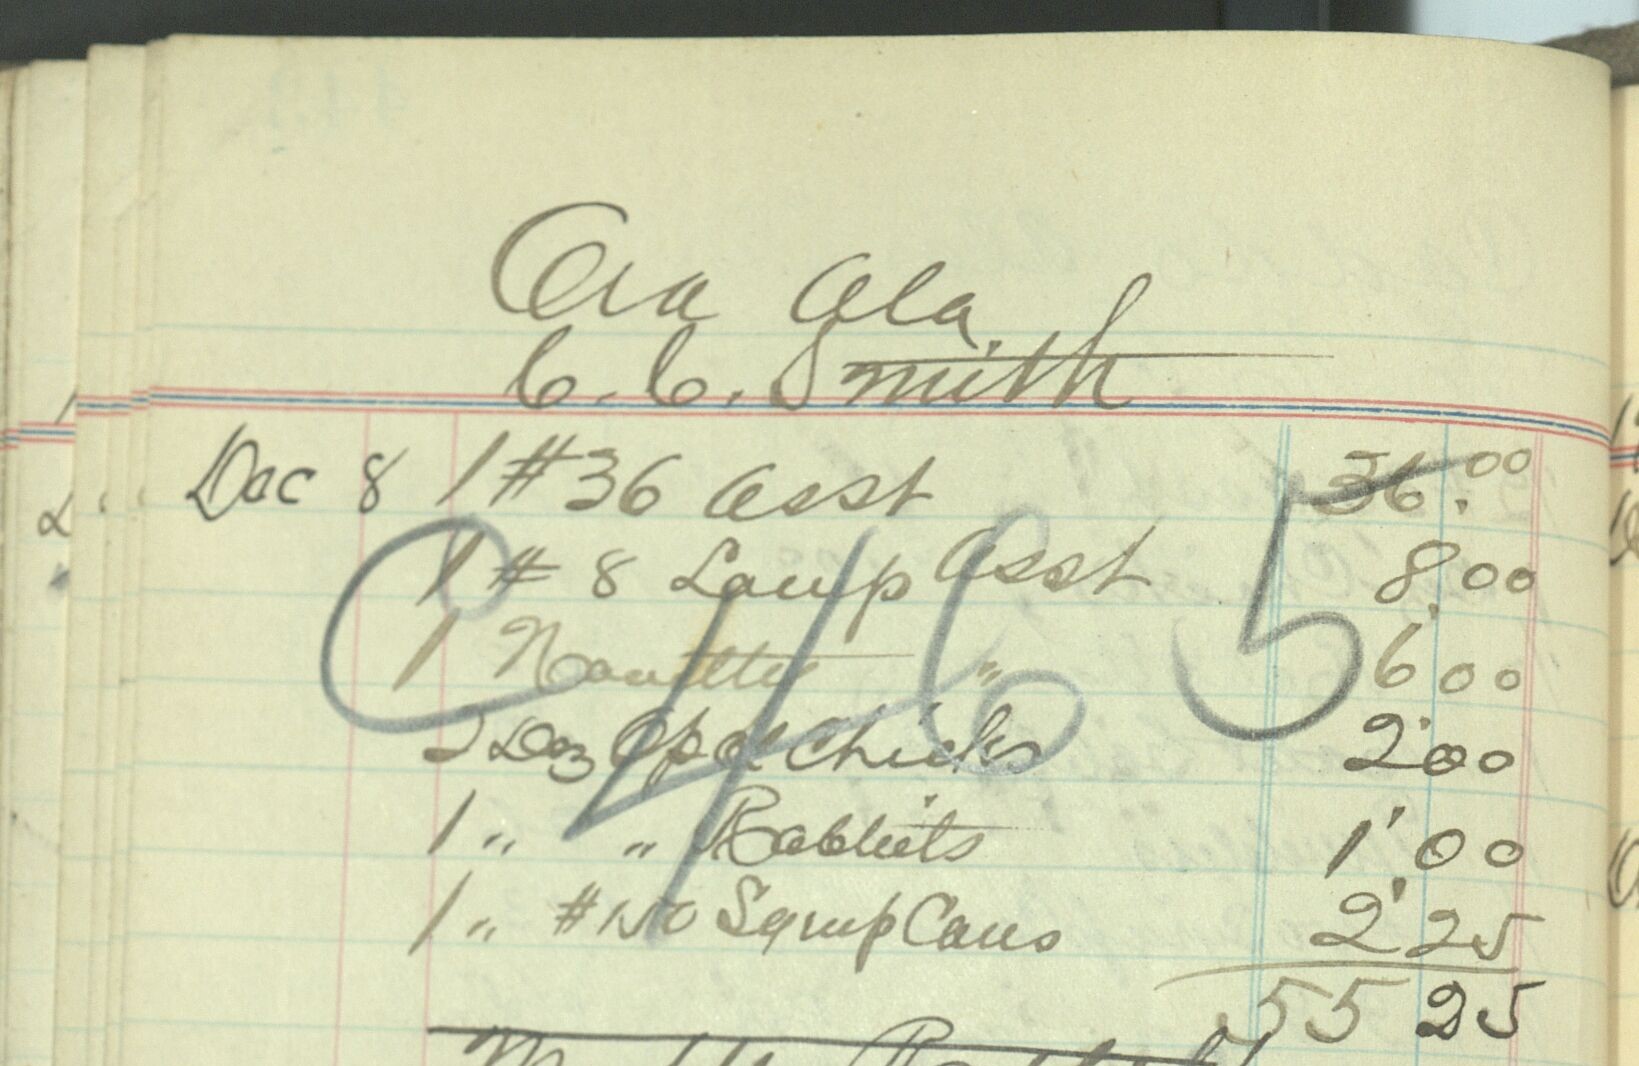 Ala
C. C. Smith
Dec 8 1 #36 Asst 36.00
1 # 8 Lamp Asst 8.00
1 " 6.00
2 Doz Opal Chicks 2.00
1 " " Rabbits 1.00
1 " #150 Syrup Cans 2.25
55 25
C465